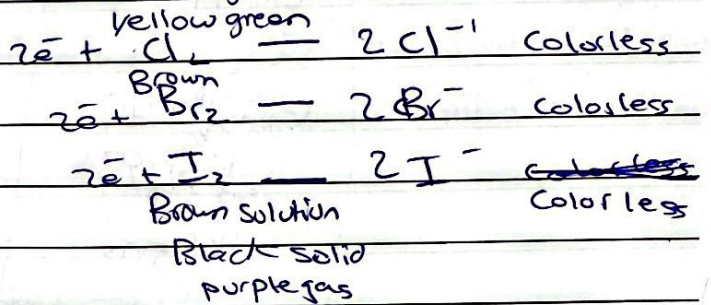 yellow green
2e̅ + Cl₂ — 2 Cl⁻¹ Colorless
Brown
2e̅ + Br₂ — 2 Br⁻ Colorless
2e̅ + I₂ — 2 I⁻ Colorless
Brown solution Colorless
Black solid
purple gas